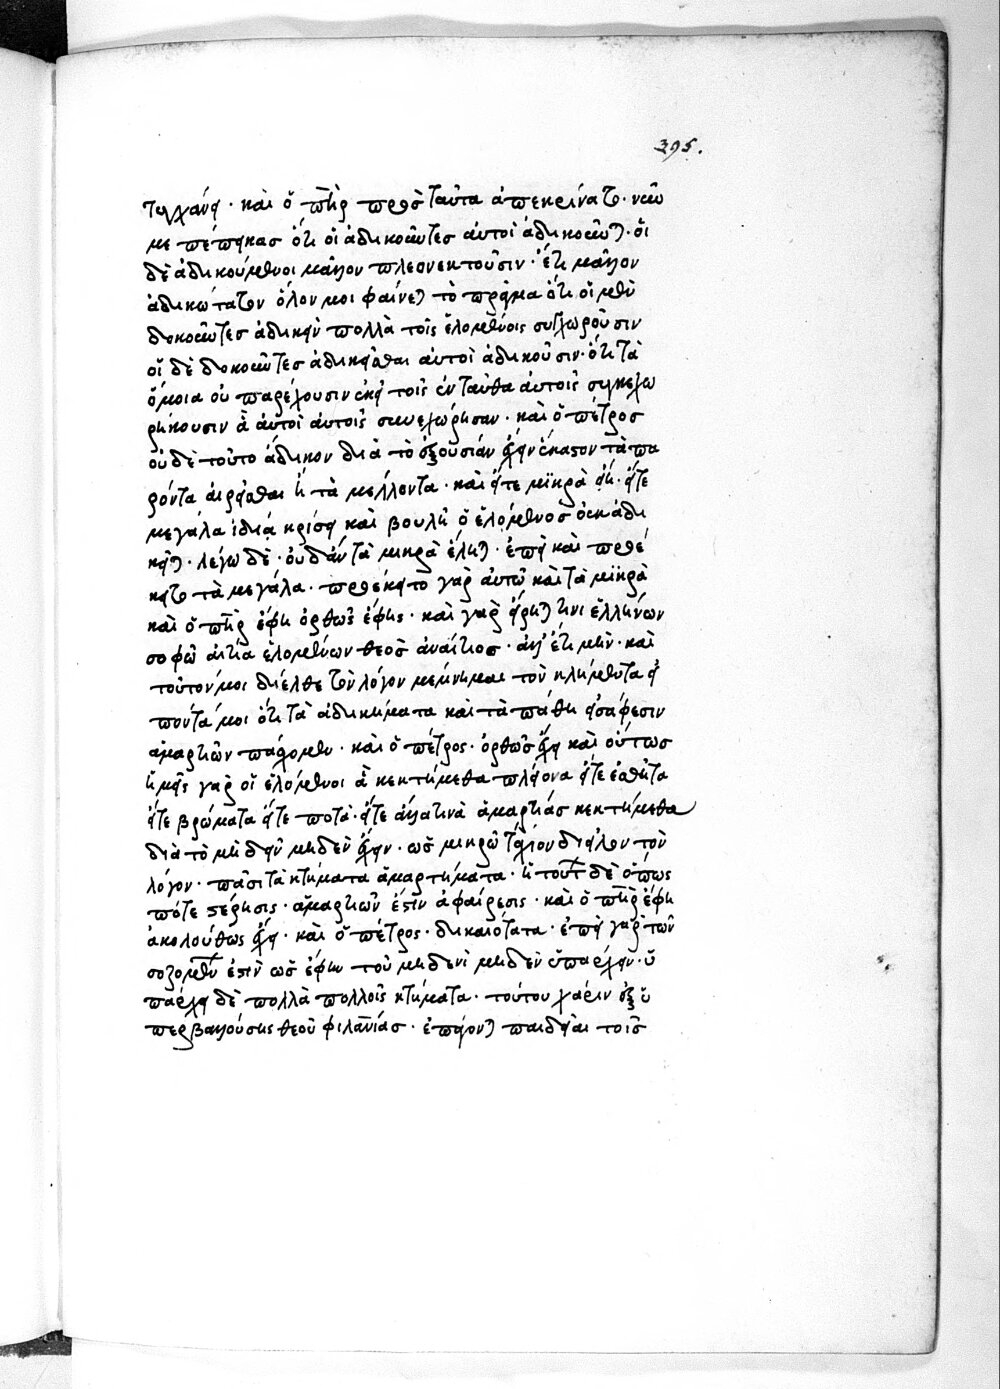 395.
τυγχάνει· καὶ ὁ πὴρ πρὸς ταῦτα ἀπεκρίνατο· νῦν
με πέπεικας ὅτι οἱ ἀδικοῦντες αὐτοὶ ἀδικοῦνται· οἱ
δὲ ἀδικούμενοι μᾶλλον πλεονεκτοῦσιν· ἔτι μᾶλλον
ἀδικώτατον ὅλον μοι φαίνεται τὸ πρᾶγμα ὅτι οἱ μὲν
δοκοῦντες ἀδικεῖν πολλὰ τοῖς ἑλομένοις συγχωροῦσιν
οἱ δὲ δοκοῦντες ἀδικεῖσθαι αὐτοὶ ἀδικοῦσιν· ὅτι τὰ
ὅμοια οὐ παρέχουσιν ἐκεῖ τοῖς ἐνταῦθα αὐτοῖς συγκεχω
ρήκουσιν ἃ αὐτοὶ αὐτοῖς συνεχώρησαν· καὶ ὁ πέτρος
οὐδὲ τοῦτο ἄδικον διὰ τὸ ἐξουσίαν ἔχειν ἕκαστον τὰ πα
ρόντα αἱρεῖσθαι ἢ τὰ μέλλοντα· καὶ εἴτε μικρὰ εἴη· εἴτε
μεγάλα ἰδίᾳ κρίσει καὶ βουλῇ ὁ ἑλόμενος οὐκ ἀδι
κεῖται· λέγω δὲ· οὐδ' ἂν τὰ μικρὰ ἕληται· ἐπεὶ καὶ προέ
κειτο τὰ μεγάλα· προέκειτο γὰρ αὐτῷ καὶ τὰ μικρὰ
καὶ ὁ πὴρ ἔφη ὀρθῶς ἔφης· καὶ γὰρ εἴρηταί τινι ἑλλήνων
σοφῷ αἰτία ἑλομένων θεὸς ἀναίτιος· ἀλλ' ἔτι μὴν· καὶ
τοῦτόν μοι δίελθε τὸν λόγον μέμνημαι τὸν κλήμεντα εἰ
πόντα μοι ὅτι τὰ ἀδικήματα καὶ τὰ πάθη εἰς ἄφεσιν
ἁμαρτιῶν πάσχομεν· καὶ ὁ πέτρος· ὀρθῶς ἔχει καὶ οὕτως
ἡμεῖς γὰρ οἱ ἑλόμενοι ἃ κεκτήμεθα πλείονα εἴτε ἐσθῆτα
εἴτε βρώματα εἴτε ποτά· εἴτε ἄλλα τινὰ ἁμαρτίας κεκτήμεθα
διὰ τὸ μὴ δεῖν μηδὲν ἔχειν· ὡς μικρῷ τάχιον διεῖλον τὸν
λόγον· πᾶσι τὰ κτήματα ἁμαρτήματα· ἡ τούτων δὲ ὅπως
ποτε στέρησις· ἁμαρτιῶν ἐστιν ἀφαίρεσις· καὶ ὁ πὴρ ἔφη
ἀκολούθως ἔχει· καὶ ὁ πέτρος· δικαιότατα· ἐπεὶ γὰρ τῶν
σοζομένων ἐστὶν ὡς ἔφην τοῦ μηδενὶ μηδὲν ὑπάρχειν· ὑ
πάρχει δὲ πολλὰ πολλοῖς κτήματα· τούτου χάριν ἐξ ὑ
περβαλλούσης θεοῦ φιλανίας· ἐπάγονται παιδεῖαι τοῖς